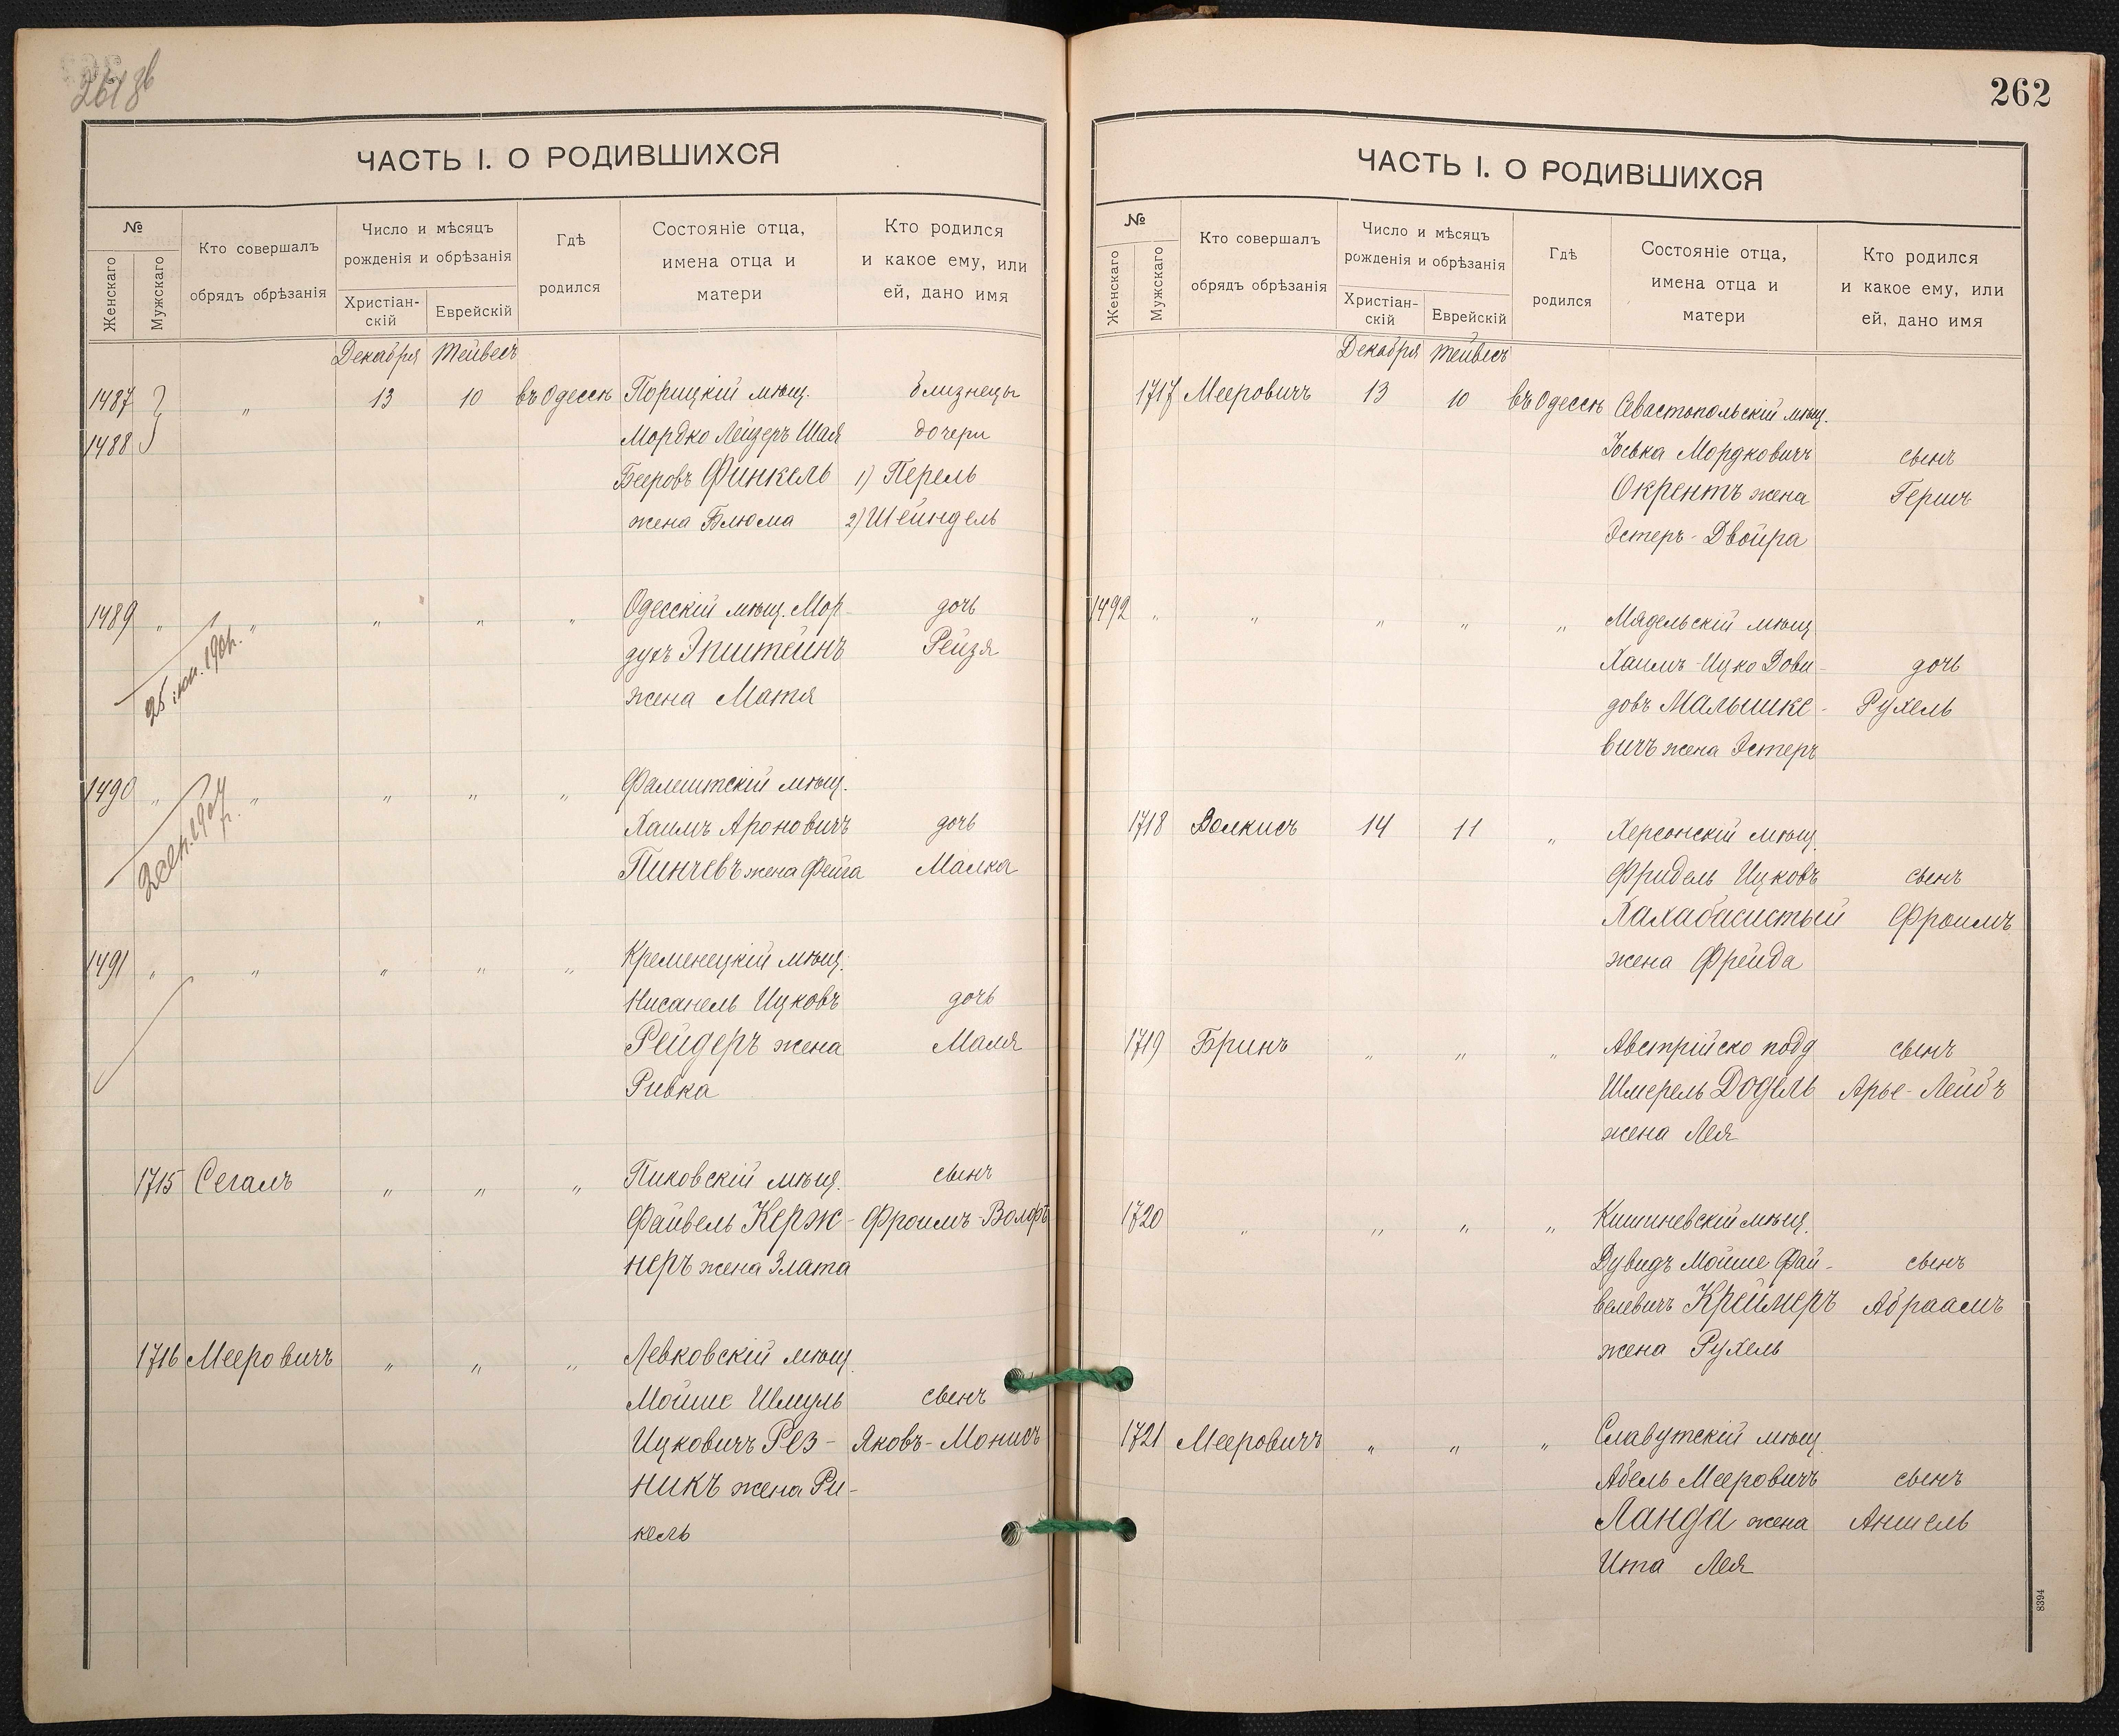 261 об
ЧАСТЬ I. О РОДИВШИХСЯ
№
Женскаго
Мужскаго
Кто совершалъ
обрядъ обрѣзанія
Число и мѣсяцъ
рожденія и обрѣзанія
Христіан-
скій
Еврейскій
Гдѣ
родился
Состояніе отца,
имена отца и
матери
Кто родился
и какое ему, или
ей, дано имя
Декабря Тейвесъ
1487 „ 13 10 въ Одессѣ Порицкій мѣщ. близнецы
1488 Мордко Лейзеръ Шая дочери
Бееровъ Финкель 1) Перель
жена Блюма 2) Шейндель
1489 „ „ „ „ „ Одесскій мѣщ. Мор- дочь
духъ Эпштейнъ Рейзя
жена Матя
25 іюн. 190
1490 „ „ „ „ „ Фалештскій мѣщ.
Хаимъ Ароновичъ дочь
Пинчевъ жена Фейга Малка
2 сер. 1904 г.
1491 „ „ „ „ „ Кременецкій мѣщ.
Нисанель Ицковъ дочь
Рейдеръ жена Маля
Ривка
1715 Сегалъ „ „ „ Пиковскій мѣщ. сынъ
Файвель Керж- Фроимъ-Волфъ
неръ жена Злата
1716 Мееровичъ „ „ „ Левковскій мѣщ.
Мойше Шмуль сынъ
Ицковичъ Рез- Яковъ-Монисъ
никъ жена Ри-
кель
262
ЧАСТЬ I. О РОДИВШИХСЯ
№
Женскаго
Мужскаго
Кто совершалъ
обрядъ обрѣзанія
Число и мѣсяцъ
рожденія и обрѣзанія
Христіан-
скій
Еврейскій
Гдѣ
родился
Состояніе отца,
имена отца и
матери
Кто родился
и какое ему, или
ей, дано имя
Декабря Тейвесъ
1717 Мееровичъ 13 10 въ Одессѣ Севастопольскій мѣщ.
Іоська Мордковичъ сынъ
Окрентъ жена Гершъ
Эстеръ-Двойра
1492 „ „ „ „ „ Мядельскій мѣщ
Хаимъ-Ицко Дови- дочь
довъ Малышке- Рухель
вичъ жена Эстеръ
1718 Волкисъ 14 11 „ Херсонскій мѣщ.
Фридель Ицковъ сынъ
Халабасистый Фроимъ
жена Фрейда
1719 Бринъ „ „ „ Австрійско подд сынъ
Шмерель Додель Арье-Лейбъ
жена Лея
1720 „ „ „ „ Кишиневскій мѣщ.
Дувидъ Мойше Фай- сынъ
велевичъ Креймеръ Абраамъ
жена Рухель
1721 Мееровичъ „ „ „ Славутскій мѣщ.
Абель Мееровичъ сынъ
Ланда жена Аншель
Ита Лея
8394